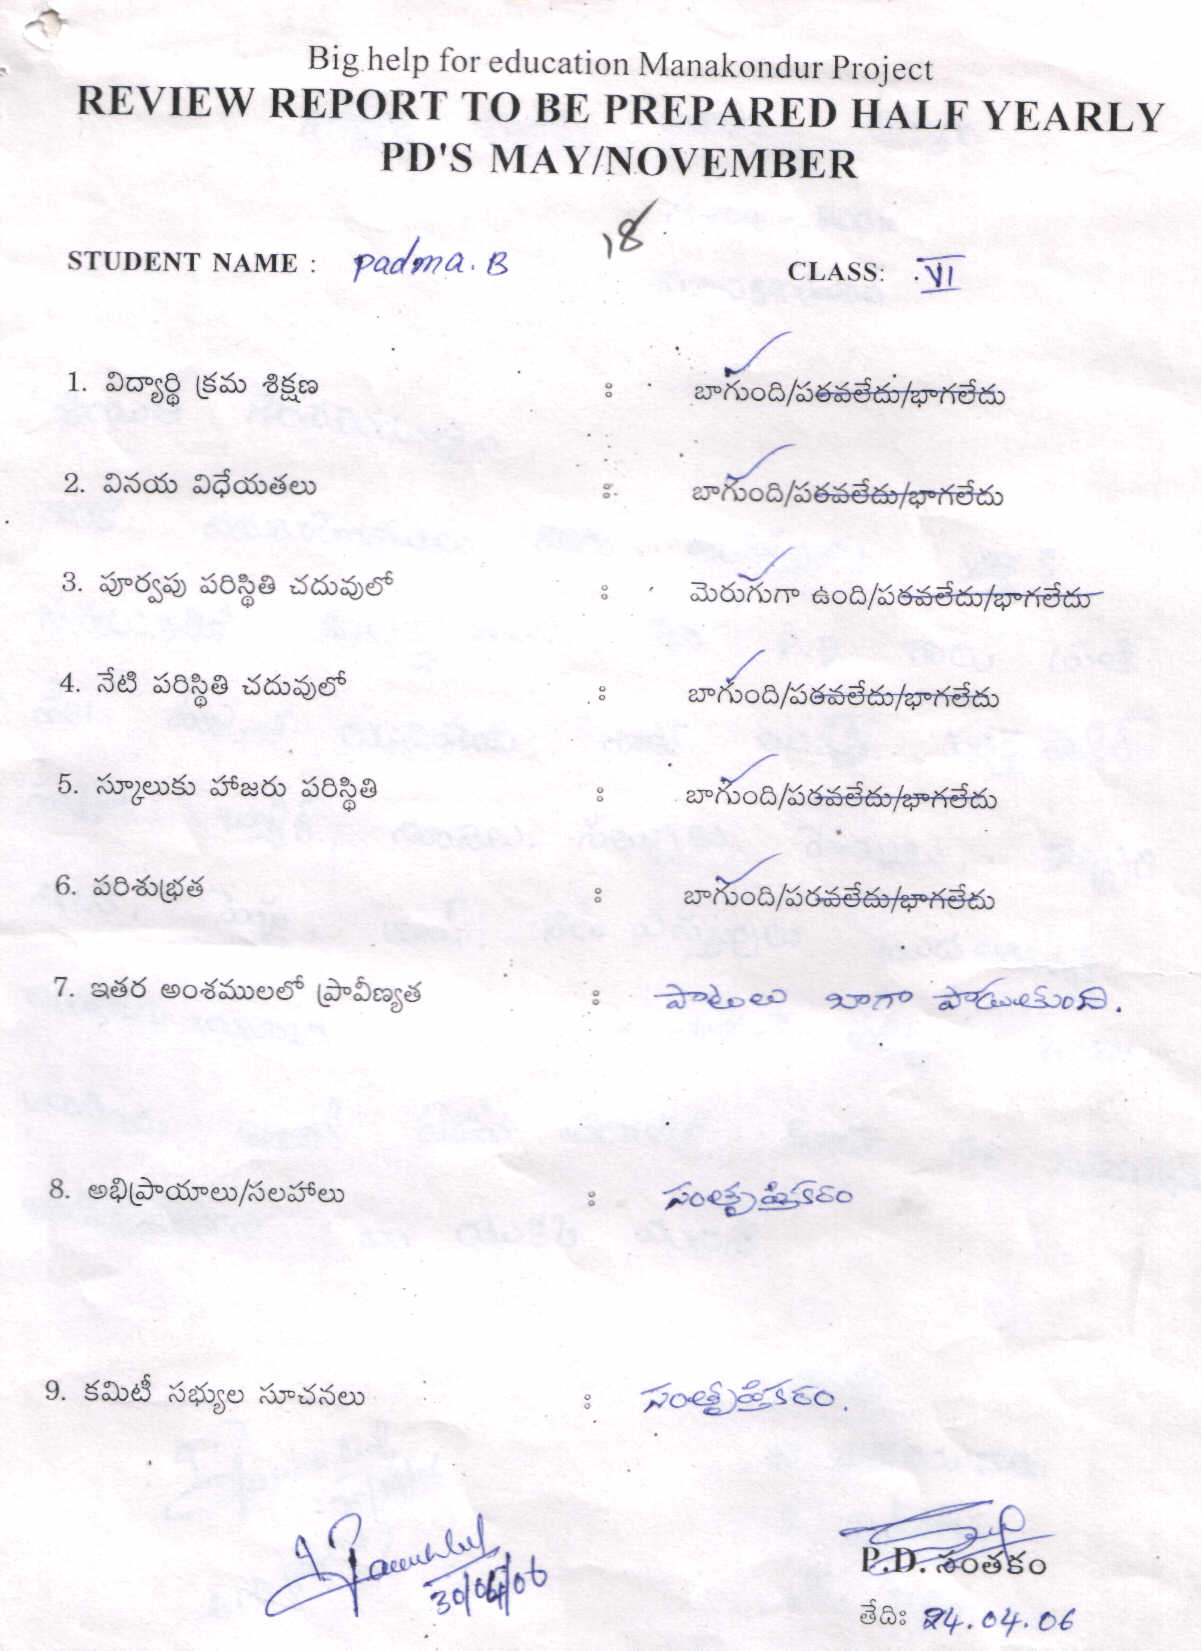 Big help for education Manakondur Project
REVIEW REPORT TO BE PREPARED HALF YEARLY
PD'S MAY/NOVEMBER
18
STUDENT NAME : Padma. B CLASS: VI
1. విద్యార్థి క్రమ శిక్షణ : బాగుంది/పరవలేదు/భాగలేదు
2. వినయ విధేయతలు : బాగుంది/పరవలేదు/భాగలేదు
3. పూర్వపు పరిస్థితి చదువులో : మెరుగుగా ఉంది/పరవలేదు/భాగలేదు
4. నేటి పరిస్థితి చదువులో : బాగుంది/పరవలేదు/భాగలేదు
5. స్కూలుకు హాజరు పరిస్థితి : బాగుంది/పరవలేదు/భాగలేదు
6. పరిశుభ్రత : బాగుంది/పరవలేదు/భాగలేదు
7. ఇతర అంశములలో ప్రావీణ్యత : పాటలు బాగా పాడుతుంది.
8. అభిప్రాయాలు/సలహాలు : సంతృప్తికరం
9. కమిటీ సభ్యుల సూచనలు : సంతృప్తికరం.
30/04/06
P.D. సంతకం
తేది: 24.04.06